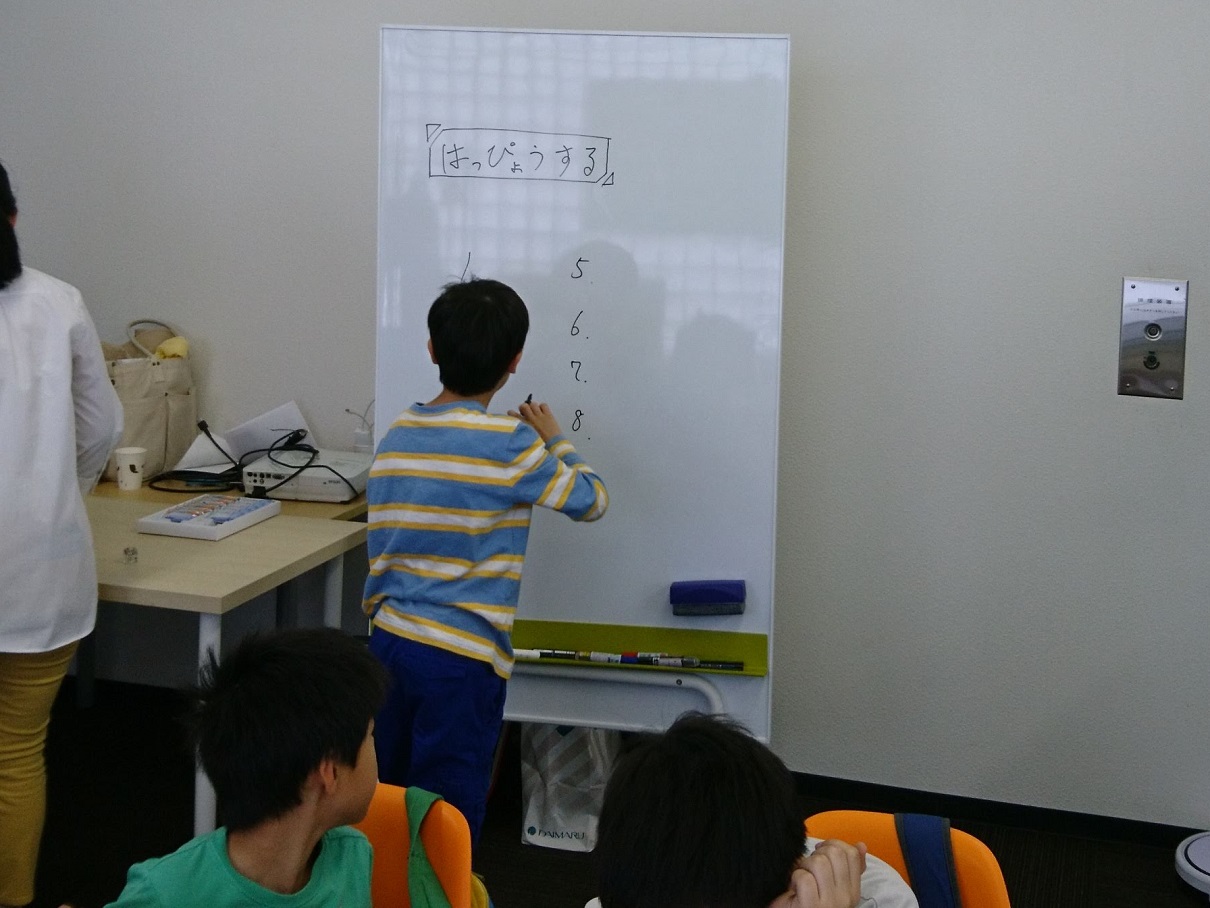 はっぴょうする
1
5.
6.
7.
8.
DAIMARU